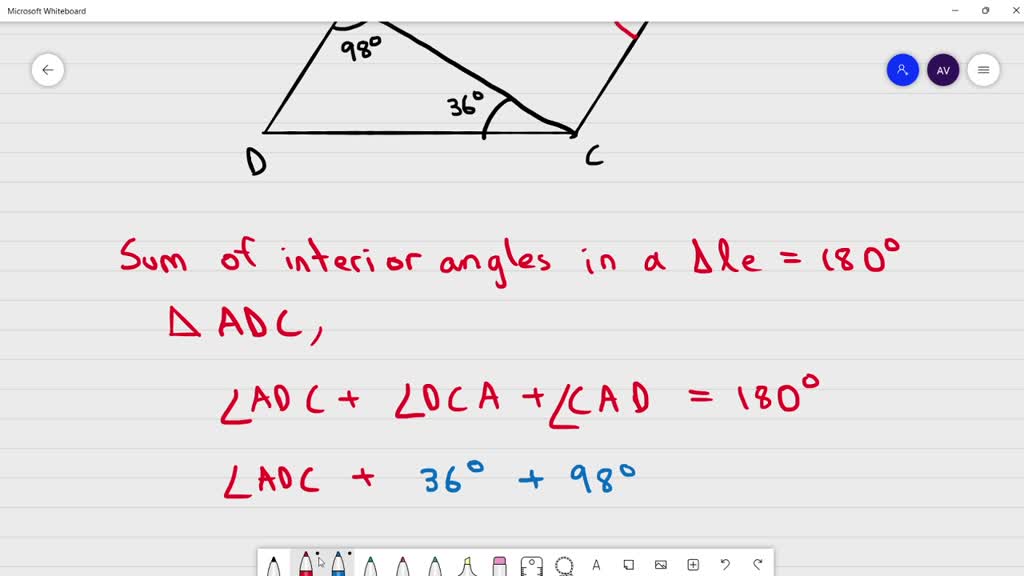 Microsoft Whiteboard
98°
AV
36°
D
C
Sum of interior angles in a Δle = 180°
Δ ADC,
∠ADC + ∠DCA + ∠CAD = 180°
∠ADC + 36° + 98°
A